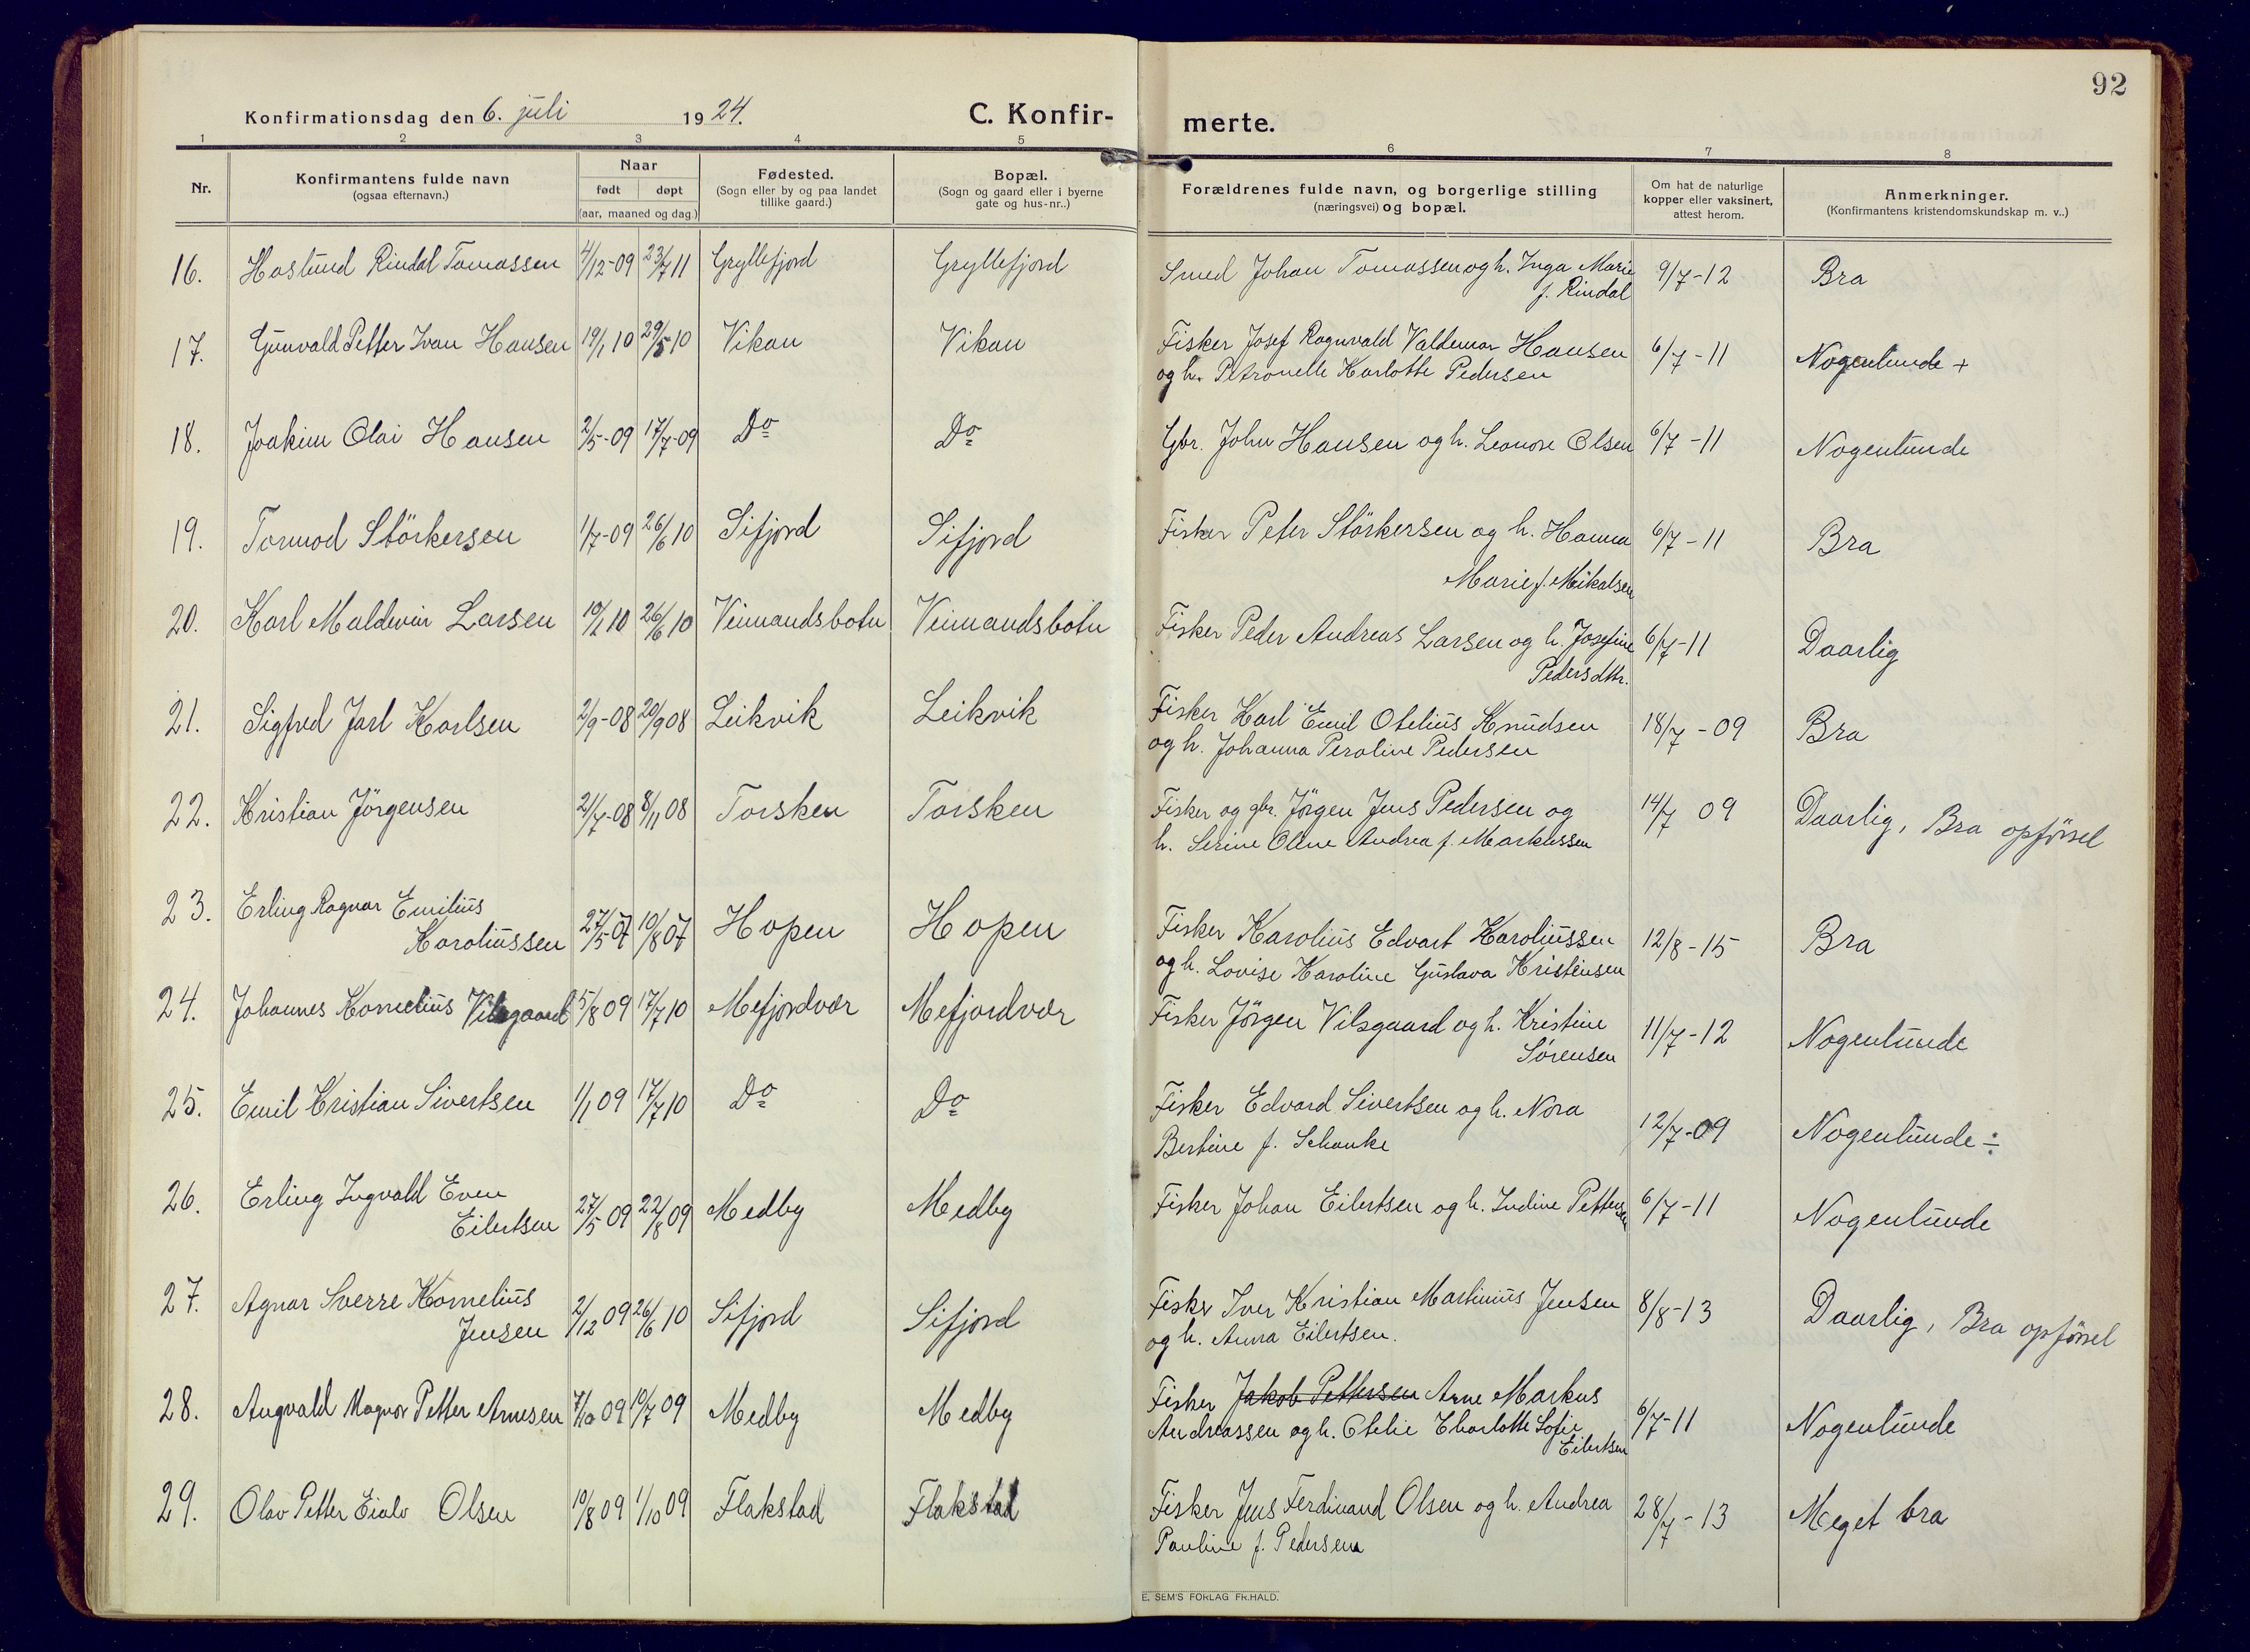 92
Konfirmationsdag den 6. juli 1924. C. Konfir-
merte.
1 2 3 4 5 6 7 8
Nr. Konfirmantens fulde navn (ogsaa efternavn.) Naar født døpt (aar, maaned og dag.) Fødested. (Sogn eller by og paa landet tillike gaard.) Bopæl. (Sogn og gaard eller i byerne gate og hus-nr..) Forældrenes fulde navn, og borgerlige stilling (næringsvei) og bopæl. Om hat de naturlige kopper eller vaksinert, attest herom. Anmerkninger. (Konfirmantens kristendomskundskap m. v..)
16. Haslund Rindal Tomassen 4/12-09 23/7 11 Gryllefjord Gryllefjord Smed Johan Tomassen og h. Inga Marie 9/7-12 Bra
f. Rindal
17. Gunvald Petter Ivan Hansen 19/1 10 29/5 10 Vikan Vikan Fisker Josef Ragnvald Valdemar Hansen 6/7-11 Nogenlunde +
og h. Petronelle Karlotte Pedersen
18. Joakim Olai Hansen 2/5-09 17/7-09 Do Do Gbr. John Hansen og h. Leonore Olsen 6/7-11 Nogenlunde
19. Tormod Störkersen 1/7-09 26/6 10 Sifjord Sifjord Fisker Peter Störkersen og h. Hanna 6/7-11 Bra
Marie f. Mikalsen
20. Karl Maldevin Larsen 10/1 10 26/6 10 Veimandsbotn Veimandsbotn Fisker Peder Andreas Larsen og h. Josefine 6/7-11 Daarlig
Pedersdtr.
21. Sigfred Jarl Karlsen 2/9-08 20/9 08 Leikvik Leikvik Fisker Karl Emil Otelius Knudsen 18/7-09 Bra
og h. Johanna Peroline Pedersen
22. Kristian Jörgensen 21/7-08 8/11 08 Torsken Torsken Fisker og gbr. Jörgen Jens Pedersen og 14/7 09 Daarlig, Bra opförsel
h. Serine Oline Andrea f. Markussen
23. Erling Ragnar Emilius
Karoliussen 27/5 07 10/8 07 Hopen Hopen Fisker Karolius Edvart Karoliussen 12/8-15 Bra
og h. Lovise Karoline Gustava Kristensen
24. Johannes Kornelius Vilsgaard 5/8 09 17/7 10 Mefjordvær Mefjordvær Fisker Jörgen Vilsgaard og h. Kristine 11/7-12 Nogenlunde
Sørensen
25. Emil Kristian Sivertsen 1/1 09 17/7 10 Do Do Fisker Edvard Sivertsen og h. Nora 12/7-09 Nogenlunde ÷
Bertine f. Schanke
26. Erling Ingvald Even
Eilertsen 27/5 09 22/8 09 Medby Medby Fisker Johan Eilertsen og h. Indine Pettersen 6/7-11 Nogenlunde
27. Agnar Sverre Kornelius
Jensen 2/12 09 26/6 10 Sifjord Sifjord Fisker Iver Kristian Martinius Jensen 8/8-13 Daarlig, Bra opförsel
og h. Anna Eilertsen.
28. Angvald Magnor Petter Arnesen 7/10 09 10/7 09 Medby Medby Fisker Jakob Pettersen Arne Markus 6/7-11 Nogenlunde
Andreassen og h. Otelie Charlotte Sofie
Eilertsen
29. Olav Petter Eialv Olsen 10/8 09 1/10 09 Flakstad Flakstad Fisker Jens Ferdinand Olsen og h. Andrea 28/7-13 Meget bra
Pauline f. Pedersen
E. SEM'S FORLAG FR.HALD.